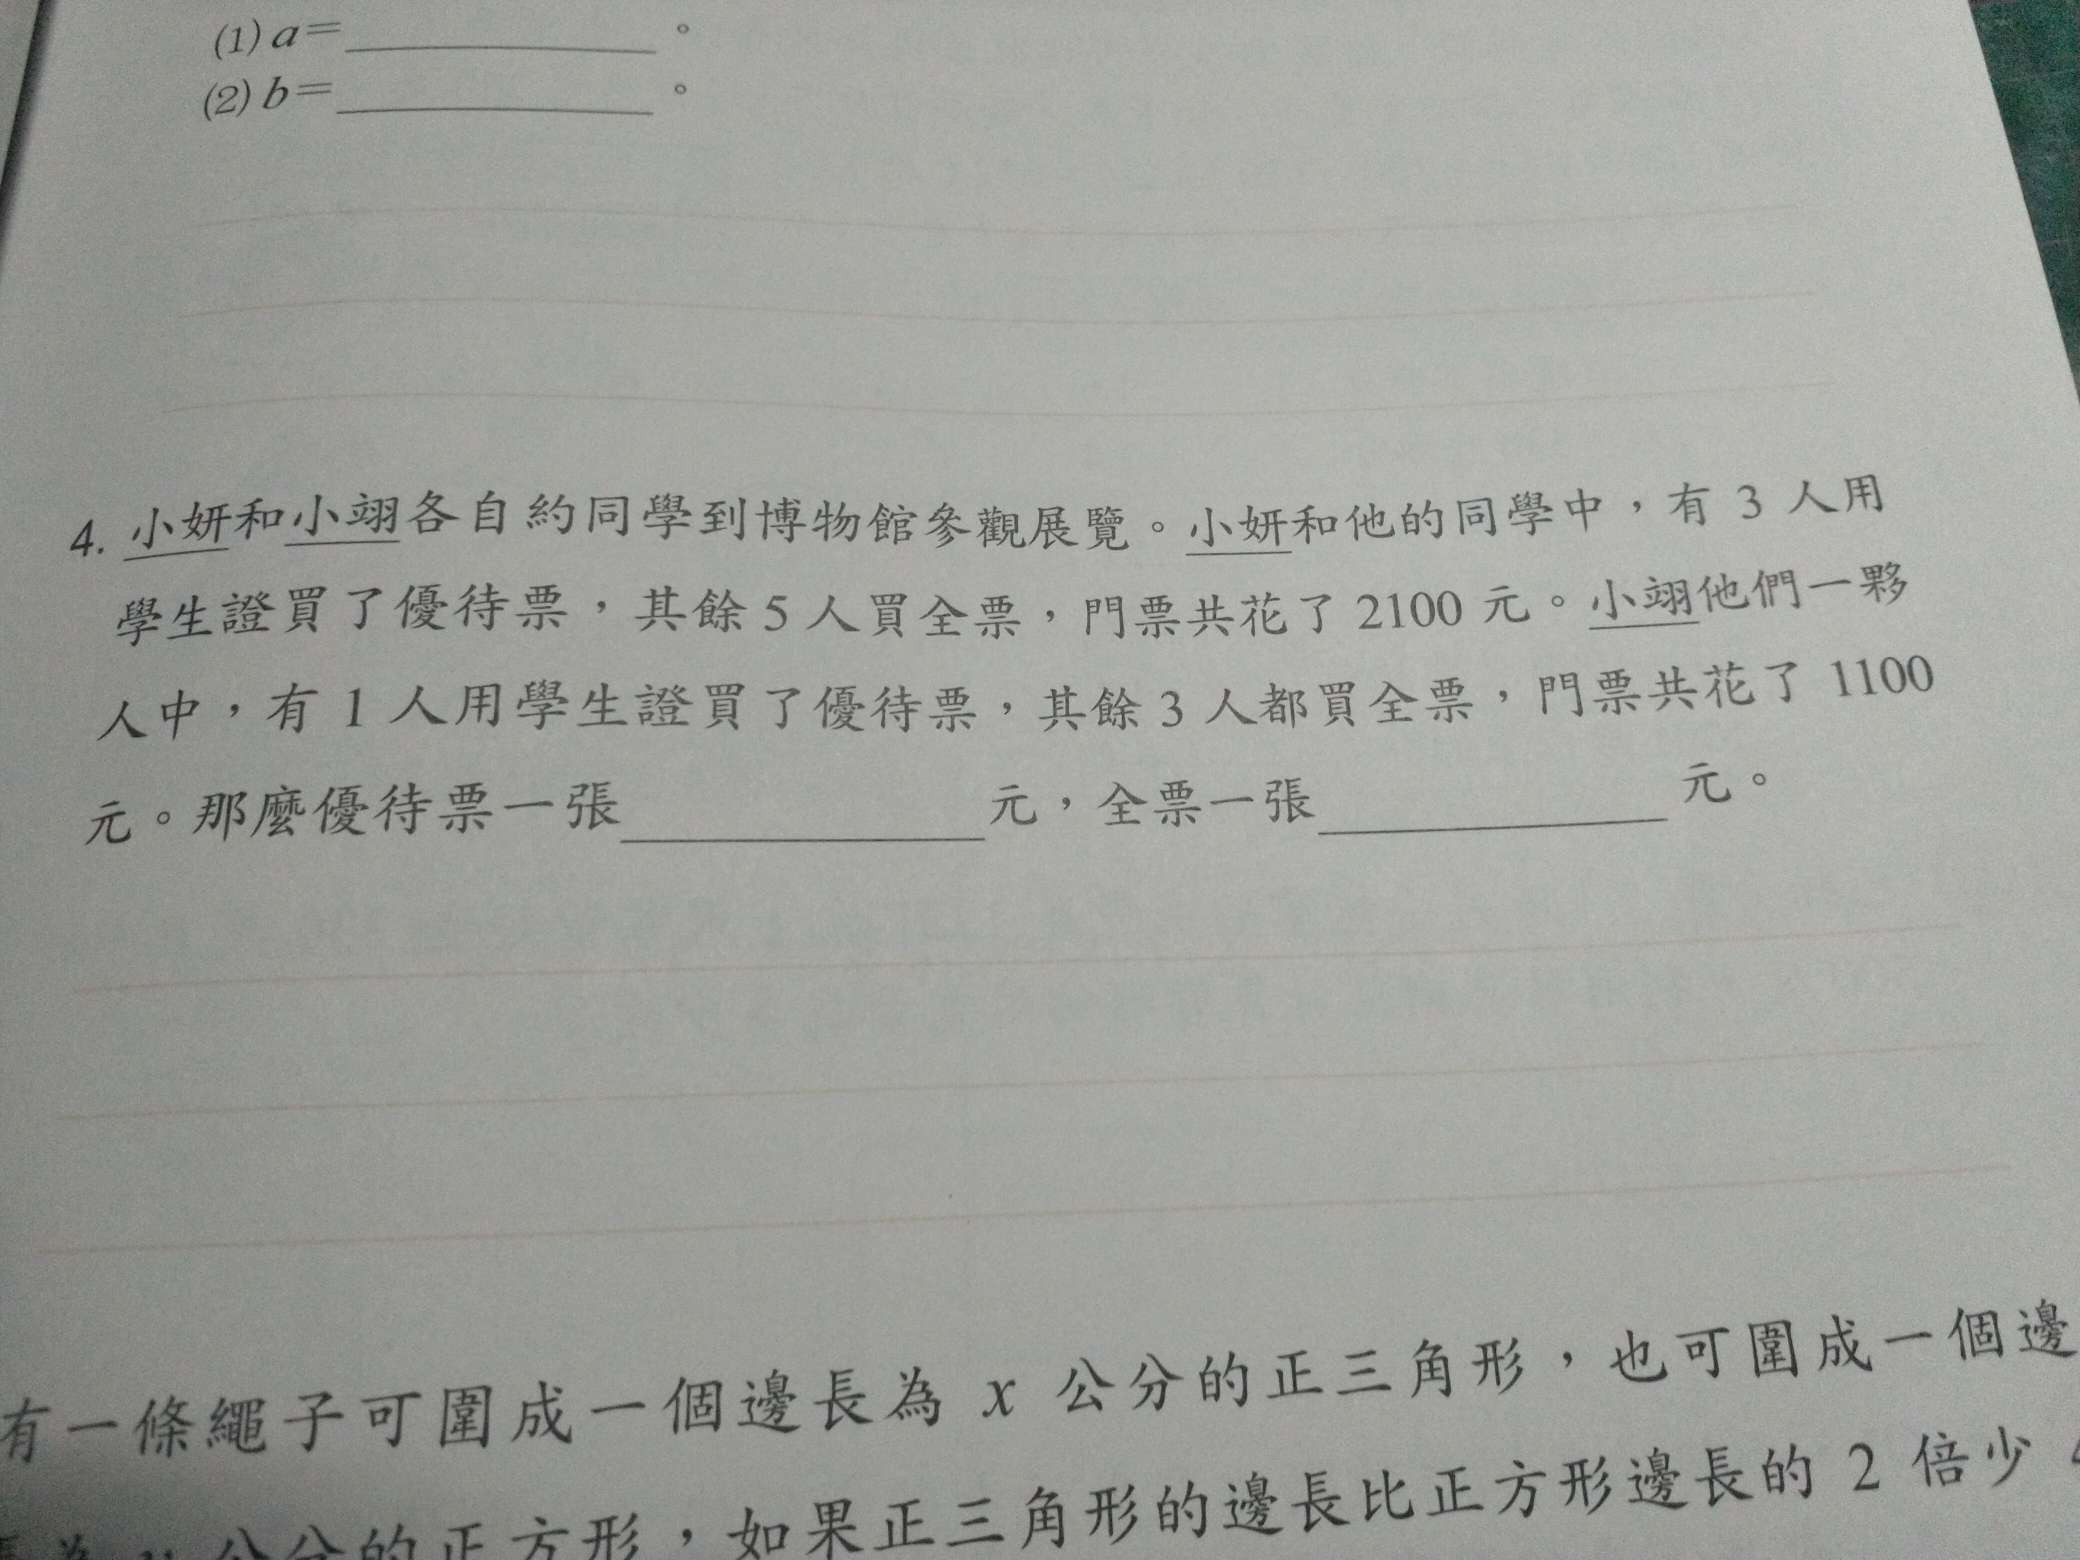 (1) a=＿＿＿＿＿＿。
(2) b=＿＿＿＿＿＿。
4. 小妍和小翊各自約同學到博物館參觀展覽。小妍和他的同學中，有 3 人用
學生證買了優待票，其餘 5 人買全票，門票共花了 2100 元。小翊他們一夥
人中，有 1 人用學生證買了優待票，其餘 3 人都買全票，門票共花了 1100
元。那麼優待票一張＿＿＿＿＿＿元，全票一張＿＿＿＿＿＿元。
有一條繩子可圍成一個邊長為 x 公分的正三角形，也可圍成一個邊
公分的正方形，如果正三角形的邊長比正方形邊長的 2 倍少